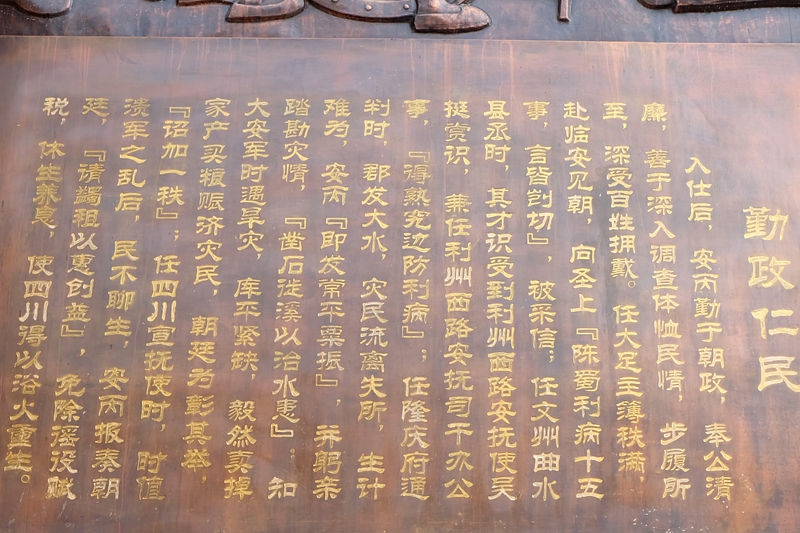 勤政仁民
入仕后，安丙勤于朝政，奉公清
廉，善于深入调查体恤民情，步履所
至，深受百姓拥戴。任大足主薄秩满，
赴临安见朝，向圣上『陈蜀利病十五
事，言皆剀切』，被采信；任文州曲水
县丞时，其才识受到利州西路安抚使吴
挺赏识，兼任利州西路安抚司干办公
事，『得熟究边防利病』；任隆庆府通
判时，郡发大水，灾民流离失所，生计
难为，安丙『即发常平粟振』，并躬亲
踏勘灾情，『凿石徙溪以治水患』。知
大安军时遇旱灾，库平紧缺，毅然卖掉
家产买粮赈济灾民，朝廷为彰其举，
『诏加一秩』；任四川宣抚使时，时值
溃军之乱后，民不聊生，安丙报奏朝
廷，『请蠲租以惠创益』，免除徭役赋
税，休生养息，使四川得以浴火重生。